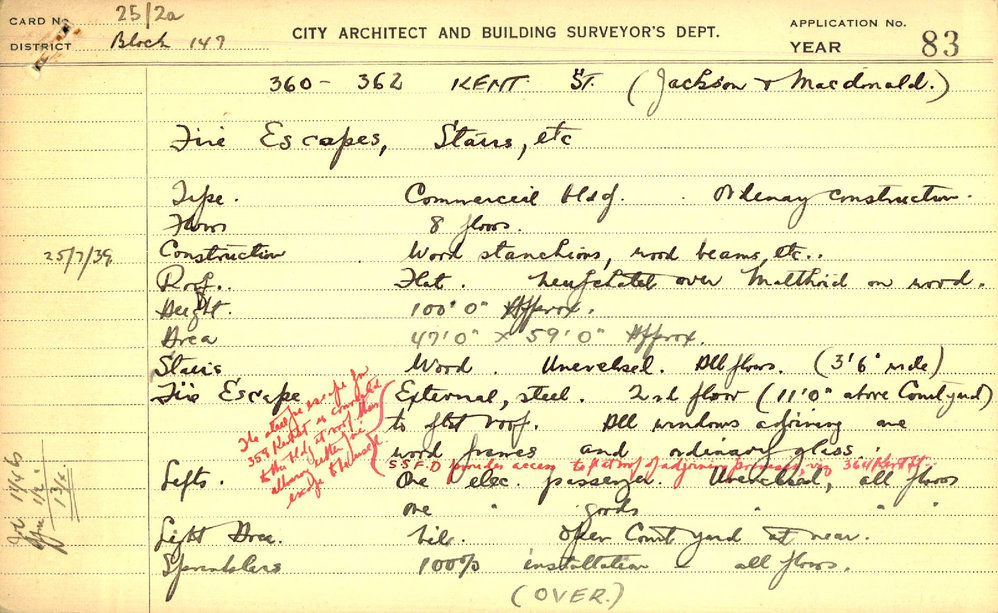 CARD No. 25/2a
DISTRICT Block 147
CITY ARCHITECT AND BUILDING SURVEYOR'S DEPT.
APPLICATION No.
YEAR 83
360 - 362 KENT ST. (Jackson & Macdonald.)
Fire Escapes, Stairs, etc
Type. Commercial bldg. Ordinary construction.
Floors 8 floors.
25/7/39 Construction Wood stanchions, wood beams, etc..
Roof.. Flat. Neufchatel over Malthoid on wood.
Height. 100' 0" Approx.
Area 47' 0" x 59' 0" Approx.
Stairs Wood. Unenclosed. All floors. (3' 6" wide)
Fire Escape External, steel. 2nd floor (11' 0" above Courtyard)
to flat roof. All windows adjoining are
wood frames and ordinary glass.
The steel fire escape for
359 Kent St is connected
to this bldg at roof
allowing either fire
escape to be used.
S.S.F.D provides access to flat roof of adjoining premises, viz 364 Kent St.
Lifts. One elec. passenger. Unenclosed, all floors
one " goods " " "
Light Area. Nil. Open Court yard at rear.
Sprinklers 100% installation - all floors.
(OVER.)